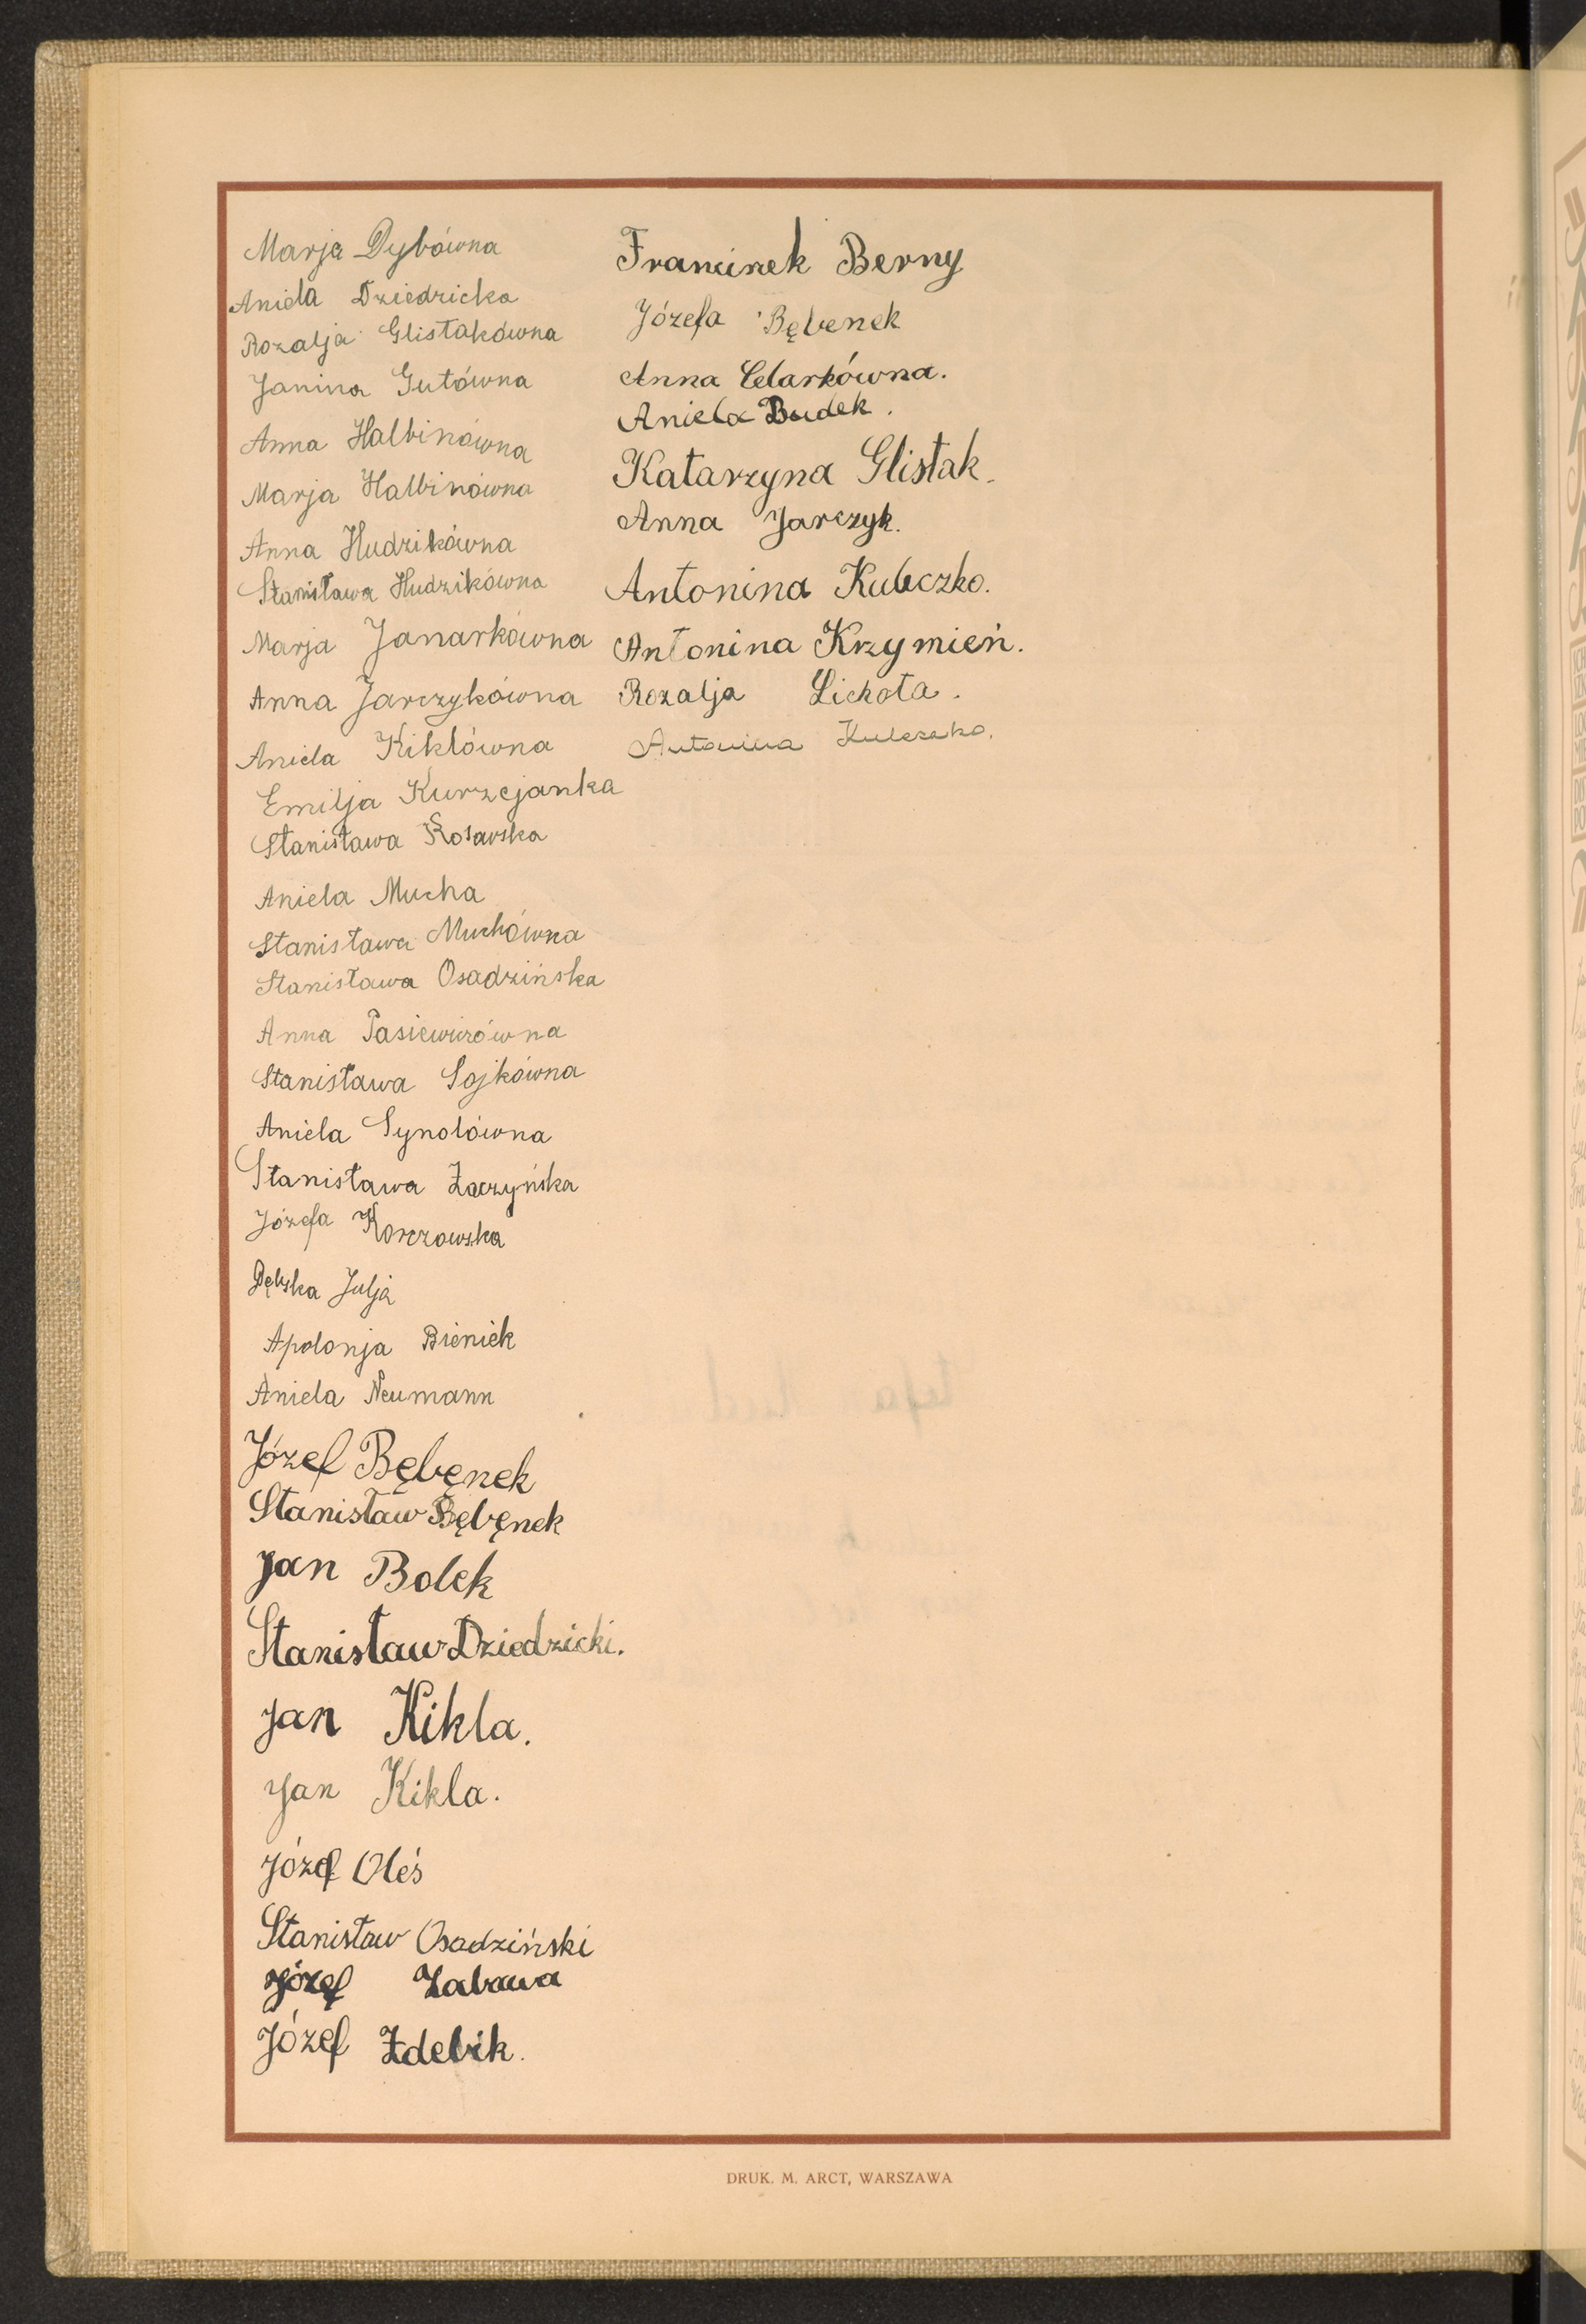 Marja Dybówna
Aniela Dziedzicka
Rozalja Glistakówna
Janina Gutówna
Anna Halbinówna
Marja Halbinówna
Anna Hudzikówna
Stanisława Hudzikówna
Marja Janarkówna
Anna Jarczykówna
Aniela Kiklówna
Emilja Kurzejanka
Stanisława
Aniela Mucha
Stanisława Muchówna
Stanisława Osadzińska
Anna Pasiewiczówna
Stanisława Sojkówna
Aniela Synolówna
Stanisława Zaczyńska
Józefa Korczowska
Dębska Julja
Apolonja Bieniek
Aniela Neumann
Józef Bębenek
Stanisław Bębenek
Jan Bolek
Stanisław Dziedzicki.
Jan Kikla.
Jan Kikla.
Józef Oleś
Stanisław Osadziński
Józef Zabawa
Józef Zdebik.
Franciszek Berny
Józefa Bębenek
Anna Celarkówna.
Aniela Budek.
Katarzyna Glistak.
Anna Jarczyk.
Antonina Kubeczko.
Antonina Krzymień.
Rozalja Lichota.
Antonina
DRUK. M. ARCT, WARSZAWA